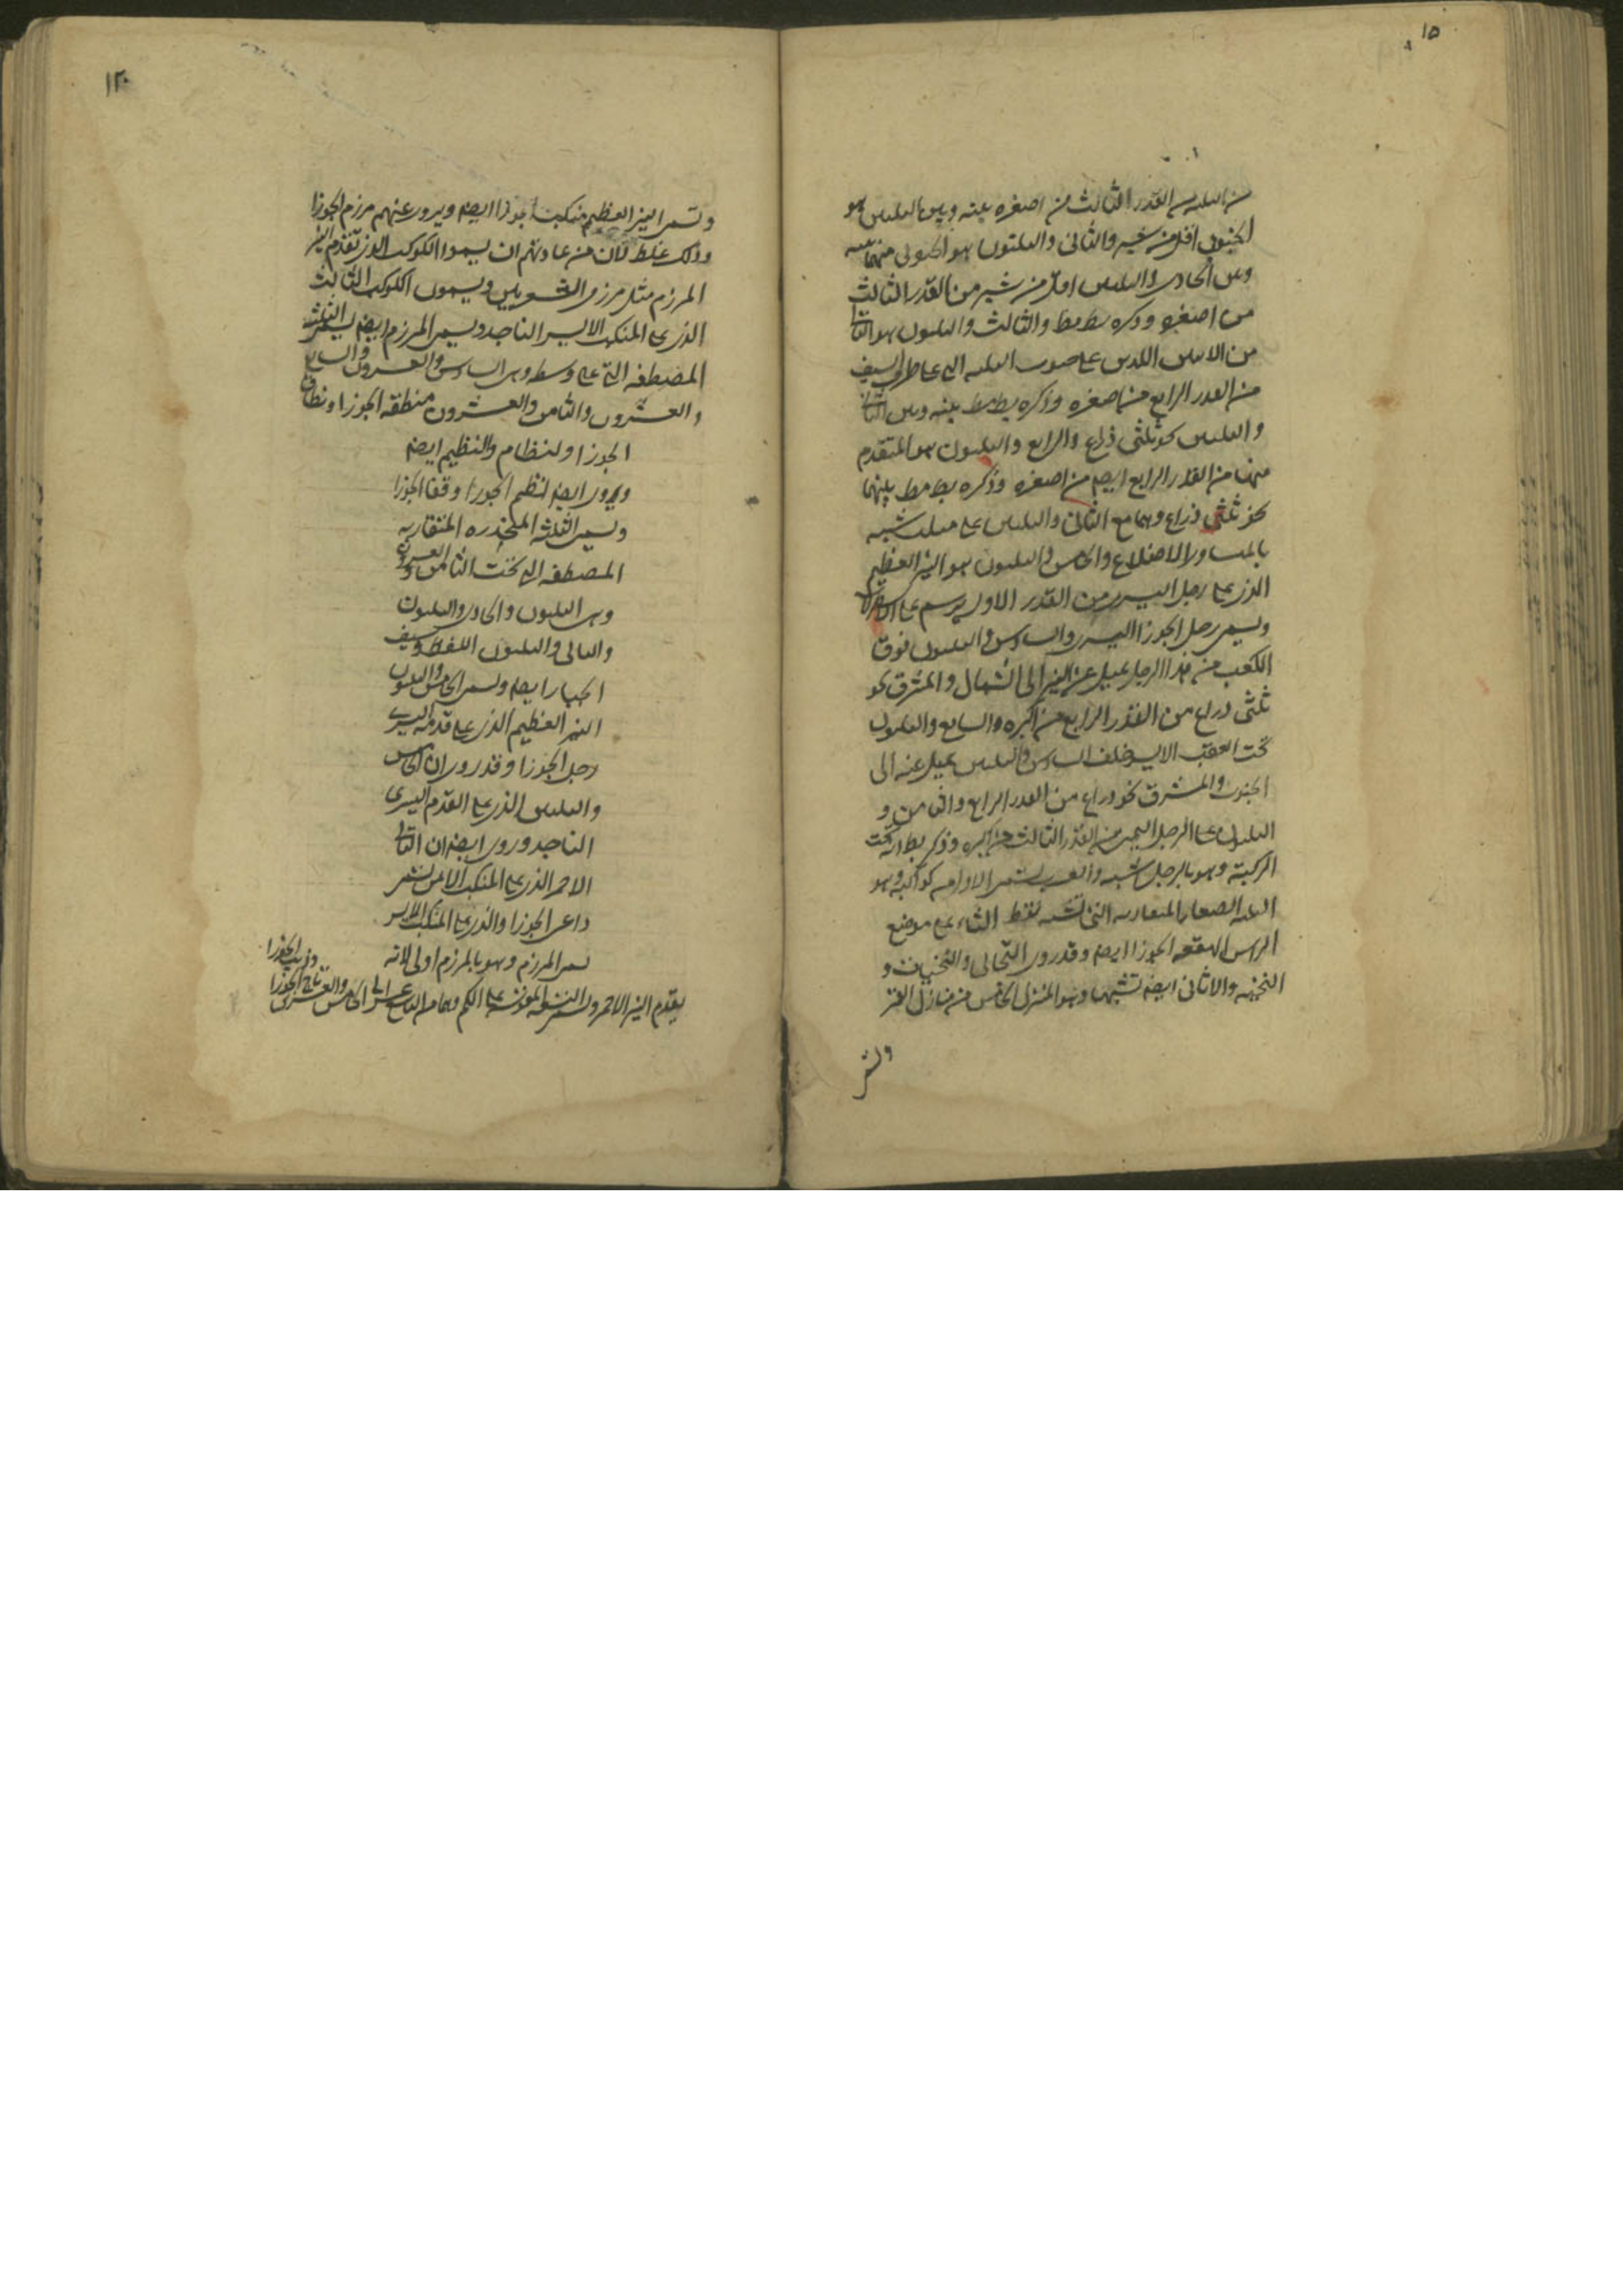 ١٥
من الثلثه من القدر الثالث من اصغره بينه وبين الثلثين هو
الجنوبى اقل من شبر والثانى والثلثون هو الجنوبى منهما بينه
وبين الحادى والثلثين اقل من شبر من القدر الثالث
من اصغره وذكره بطلميوس والثالث والثلثون هو التالى
من الاثنين اللذين على صوب الثلثه التى على طرف السيف
من القدر الرابع من اصغره وذكره بطلميوس بينه وبين الثانى
والثلثين نحو ثلثى ذراع والرابع والثلثون هو المتقدم
منهما من القدر الرابع ايضا من اصغره وذكره بطلميوس بينهما
نحو ثلثى ذراع وهما مع الثانى والثلثين على مثلث شبيه
بالمتساوى الاضلاع والخامس والثلثون هو النير العظيم
الذى على رجل اليسرى من القدر الاول يرسم على الاصطرلاب
ويسمى رجل الجوزا اليسرى والسادس والثلثون فوق
الكعب من هذا الرجل يميل عن النير الى الشمال والمشرق نحو
ثلثى ذراع من القدر الرابع من اكبره والسابع والثلثون
تحت العقب الايسر خلف السادس والثلثين يميل عنه الى
الجنوب والمشرق نحو ذراع من القدر الرابع والثامن و
الثلثون على الرجل اليمنى من القدر الثالث من اكبره وذكر بط انه تحت
الركبة وهو بالرجل اشبه والعرب تسمى الاول مع كواكبه وهو
الثلثه الصغار المتقاربه التى تشبه نقط الثاء على موضع
الراس الهقعه الجوزا ايضا وقد روى التحائى والتحيات و
التحيه والاثافى ايضا تشبيها وهو المنزل الخامس من منازل القمر
وتسمى
١٢٠
وتسمى النير العظيم منكب الجوزا ايضا ويروى عنهم مرزم الجوزا
وذلك غلط لان من عادتهم ان يسموا الكوكب الذى تقدم النير
المرزم مثل مرزمى الشعريين ويسمون الكوكب الثالث
الذى على المنكب الايسر الناجد ويسمى المرزم ايضا يسمى الثلثه
المصطفه التى على وسطه وهى السادس والعشرون والسابع
والعشرون والثامن والعشرون منطقه الجوزا ونطاق
الجوزا والنظام والنظيم ايضا
ويروى ايضا نظم الجوزا وفقا الجوزا
ويسمى الثلثه المنحدره المتقاربه
المصطفه التى تحت الثامن والعشرين
وهى الثلثون والحادى والثلثون
والثانى والثلثون اللقط وسيف
الجبار ايضا ويسمى الخامس والثلثون
النير العظيم الذى على قدمه اليسرى
رجل الجوزا وقد روى ان الخامس
والثلثين الذى على القدم اليسرى
الناجد وروى ايضا ان الثانى
الاحمر الذى على المنكب الايمن يسمى
راعى الجوزا والذى على المنكب الايسر
يسمى المرزم وهو بالمرزم اولى لانه
يتقدم النير الاحمر ويسمى التسعه المقوسه على الكم وهى من السابع عشر الى الخامس والعشرين تاج الجوزا
وذوايب الجوزا